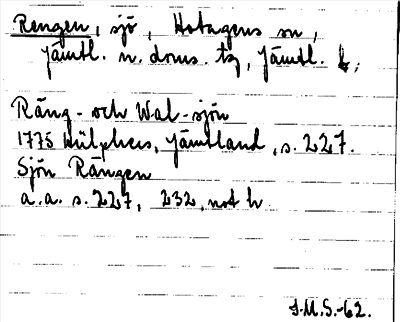 Rengen, sjö, Hotagens sn,
Jämtl. n. doms. tg, Jämtl. l;
Räng- och Wal-sjön
1775 Hülphers, Jämtland, s. 227.
Sjön Rängen
a.a. s. 227, 232, not h
J.M.S.-62.